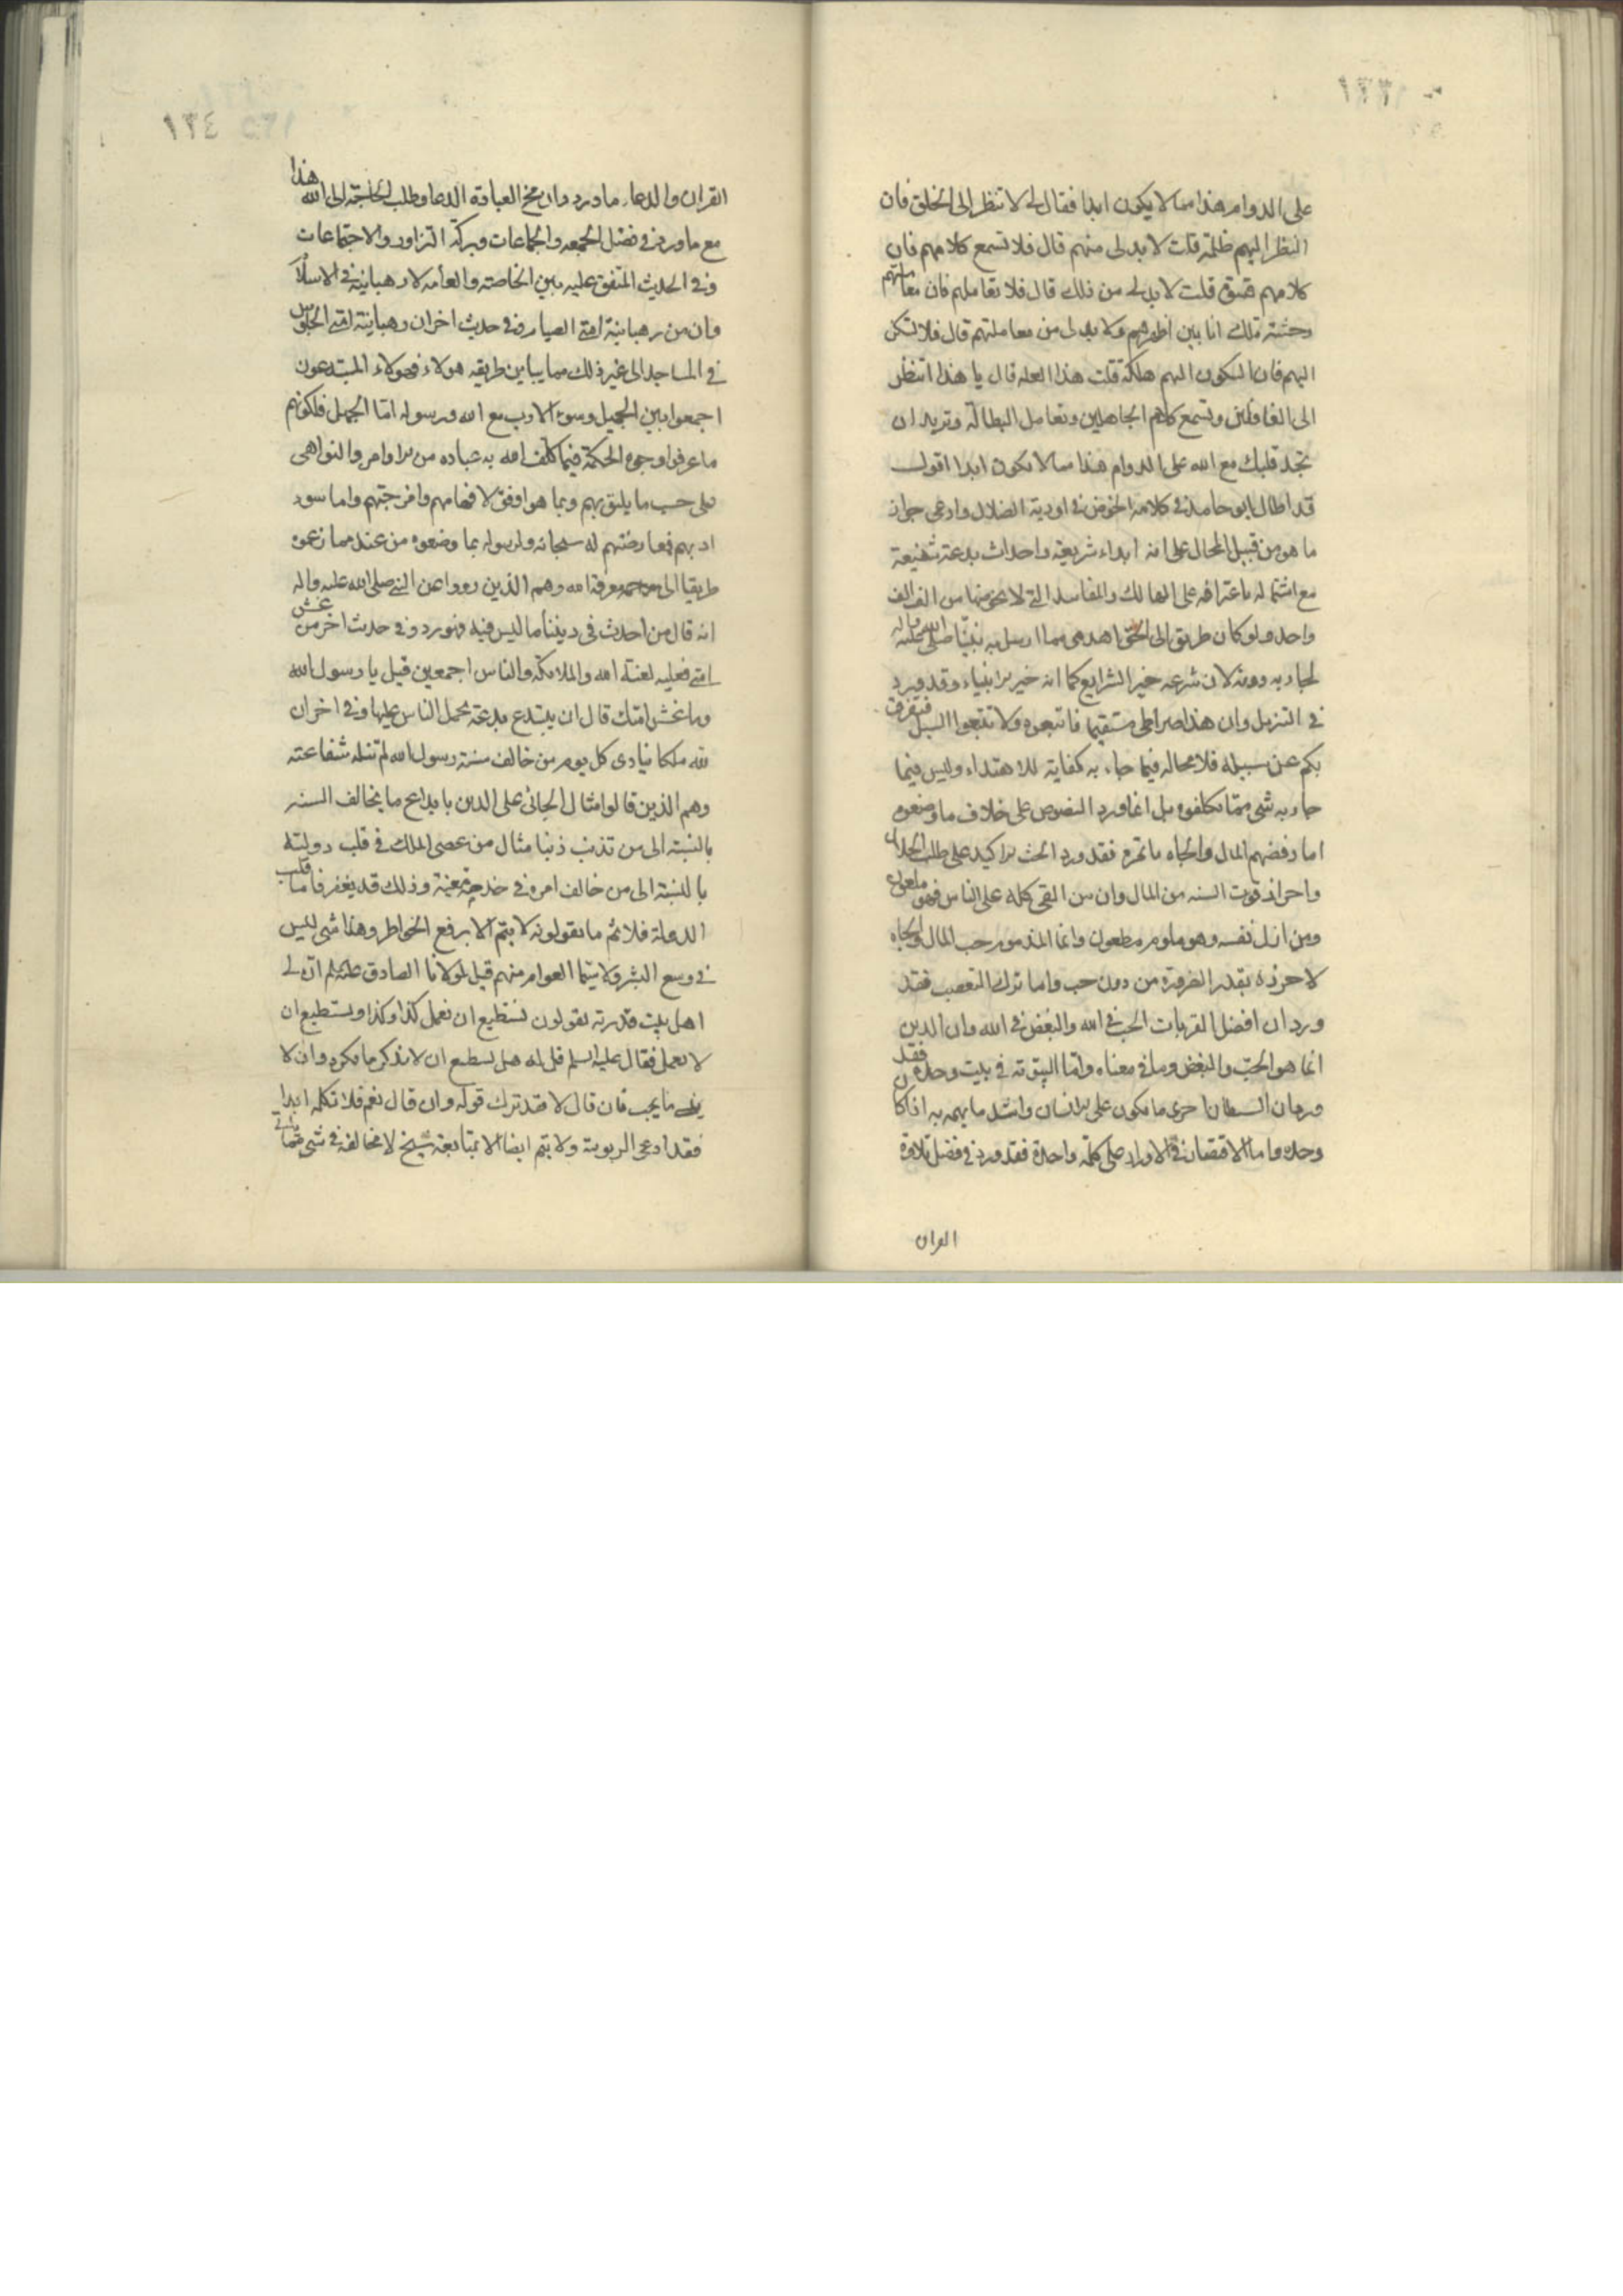 ١٣٣
على الدوام هذا مما لا يكون ابدا فقال لي لا تنظر الى الخلق فان
النظر اليهم ظلمة قلت لا بد لى منهم قال فلا تسمع كلامهم فان
كلامهم قسوة قلت لا بد لي من ذلك قال فلا تعاملهم فان معاملتهم
وحشة قلت انا بين اظهرهم ولا بد لى من معاملتهم قال فلا تسكن
اليهم فان السكون اليهم هلكة قلت هذا العلة قال يا هذا اتنظر
الى الغافلين وتسمع كلام الجاهلين وتعامل البطالة وتريد ان
تجد قلبك مع الله على الدوام هذا مما لا يكون ابدا اقول
قد اطال ابو حامد في كلامه الخوض في اودية الضلال وادعى جواز
ما هو من قبيل المحال على انه ابداء شريعة واحداث بدعة شنيعة
مع اشتماله باعترافه على المهالك والمفاسد التي لا ينجو منها من الف الف
واحد ولو كان طريق الى الحق اهدى مما ارسل به نبينا صلى الله عليه واله
لجاء به دونه لان شرعه خير الشرايع كما انه خير الانبياء وقد ورد
في التنزيل وان هذا صراطي مستقيما فاتبعوه ولا تتبعوا السبل فتفرق
بكم عن سبيله فلا محالة فيما جاء به كفاية للاهتداء وليس فيما
جاء به شى مما تكلفوه بل انما ورد النصوص على خلاف ما وضعوه
اما رفضهم المال والجاه باتمره فقد ورد الحث الاكيد على طلب الحلال
واحراز قوت السنه من المال وان من القى كله على الناس فهو ملعون
ومن اذل نفسه وهو ملوم مطعون وانما المذموم حب المال والجاه
لا حرزه بقدر الضرورة من دون حب واما ترك التعصب فقد
ورد ان افضل القربات الحب في الله والبغض في الله وان الدين
انما هو الحب والبغض وما في معناه واما البيتوتة في بيت وحده فقد
ورد ان الشيطان احرى ما يكون على الانسان واشد ما يهم به اذا كان
وحده واما الاقتصار في الاوراد على كلمة واحدة فقد ورد في فضل تلاوة
القران
١٣٤
القران والدعاء ما ورد وان مخ العبادة الدعا وطلب الحاجة الى الله هذا
مع ما ورد في فضل الجمعه والجماعات وبركة التزاور والاجتماعات
وفي الحديث المتفق عليه بين الخاصة والعامه لا رهبانية في الاسلام
وان من رهبانية امتي الصيام وفي حديث اخر ان رهبانية امتي الجلوس
في المساجد الى غير ذلك مما يباين طريقه هولاء فهولاء المبتدعون
اجمعوا بين الجهل وسوء الادب مع الله ورسوله اما الجهل فلكونهم
ما عرفوا وجوه الحكمة فيما كلف الله به عباده من الاوامر والنواهى
على حسب ما يليق بهم وبما هو اوفق لافهامهم وامزجتهم واما سوء
ادبهم فمعارضتهم له سبحانه ولرسوله بما وضعوه من عندهم مما زعموه
طريقا الى معرفة الله وهم الذين رووا عن النبي صلى الله عليه واله
انه قال من احدث في ديننا ما ليس فيه فهو رد وفي حديث اخر من غش
امتي فعليه لعنة الله والملائكة والناس اجمعين قيل يا رسول الله
وما غش امتك قال ان يبتدع بدعة يحمل الناس عليها وفي اخر ان
لله ملكا ينادى كل يوم من خالف سنة رسول الله لم تنله شفاعته
وهم الذين قالوا مثال الجانى على الدين بابداع ما يخالف السنه
بالنسبة الى من تذنب ذنبا مثال من عصى الملك في قلب دولته
بالنسبة الى من خالف امره في خدمة معينة وذلك قد يغفر فاما قلب
الدولة فلا ثم ما يقولونه لا يتم الا برفع الخواطر وهذا شى ليس
في وسع البشر ولا سيما العوام منهم قيل لمولانا الصادق عليه السلم ان لي
اهل بيت قدرية يقولون نستطيع ان نعمل كذا وكذا ونستطيع ان
لا نعمل فقال عليه السلم قل له هل يستطيع ان لا تذكر ما تكره وان لا
ينسى ما يحب فان قال لا فقد ترك قوله وان قال نعم فلا تكلمه ابدا
فقد ادعى الربوبية ولا يتم ايضا الا بمتابعة شيخ لا مخالفه في شى